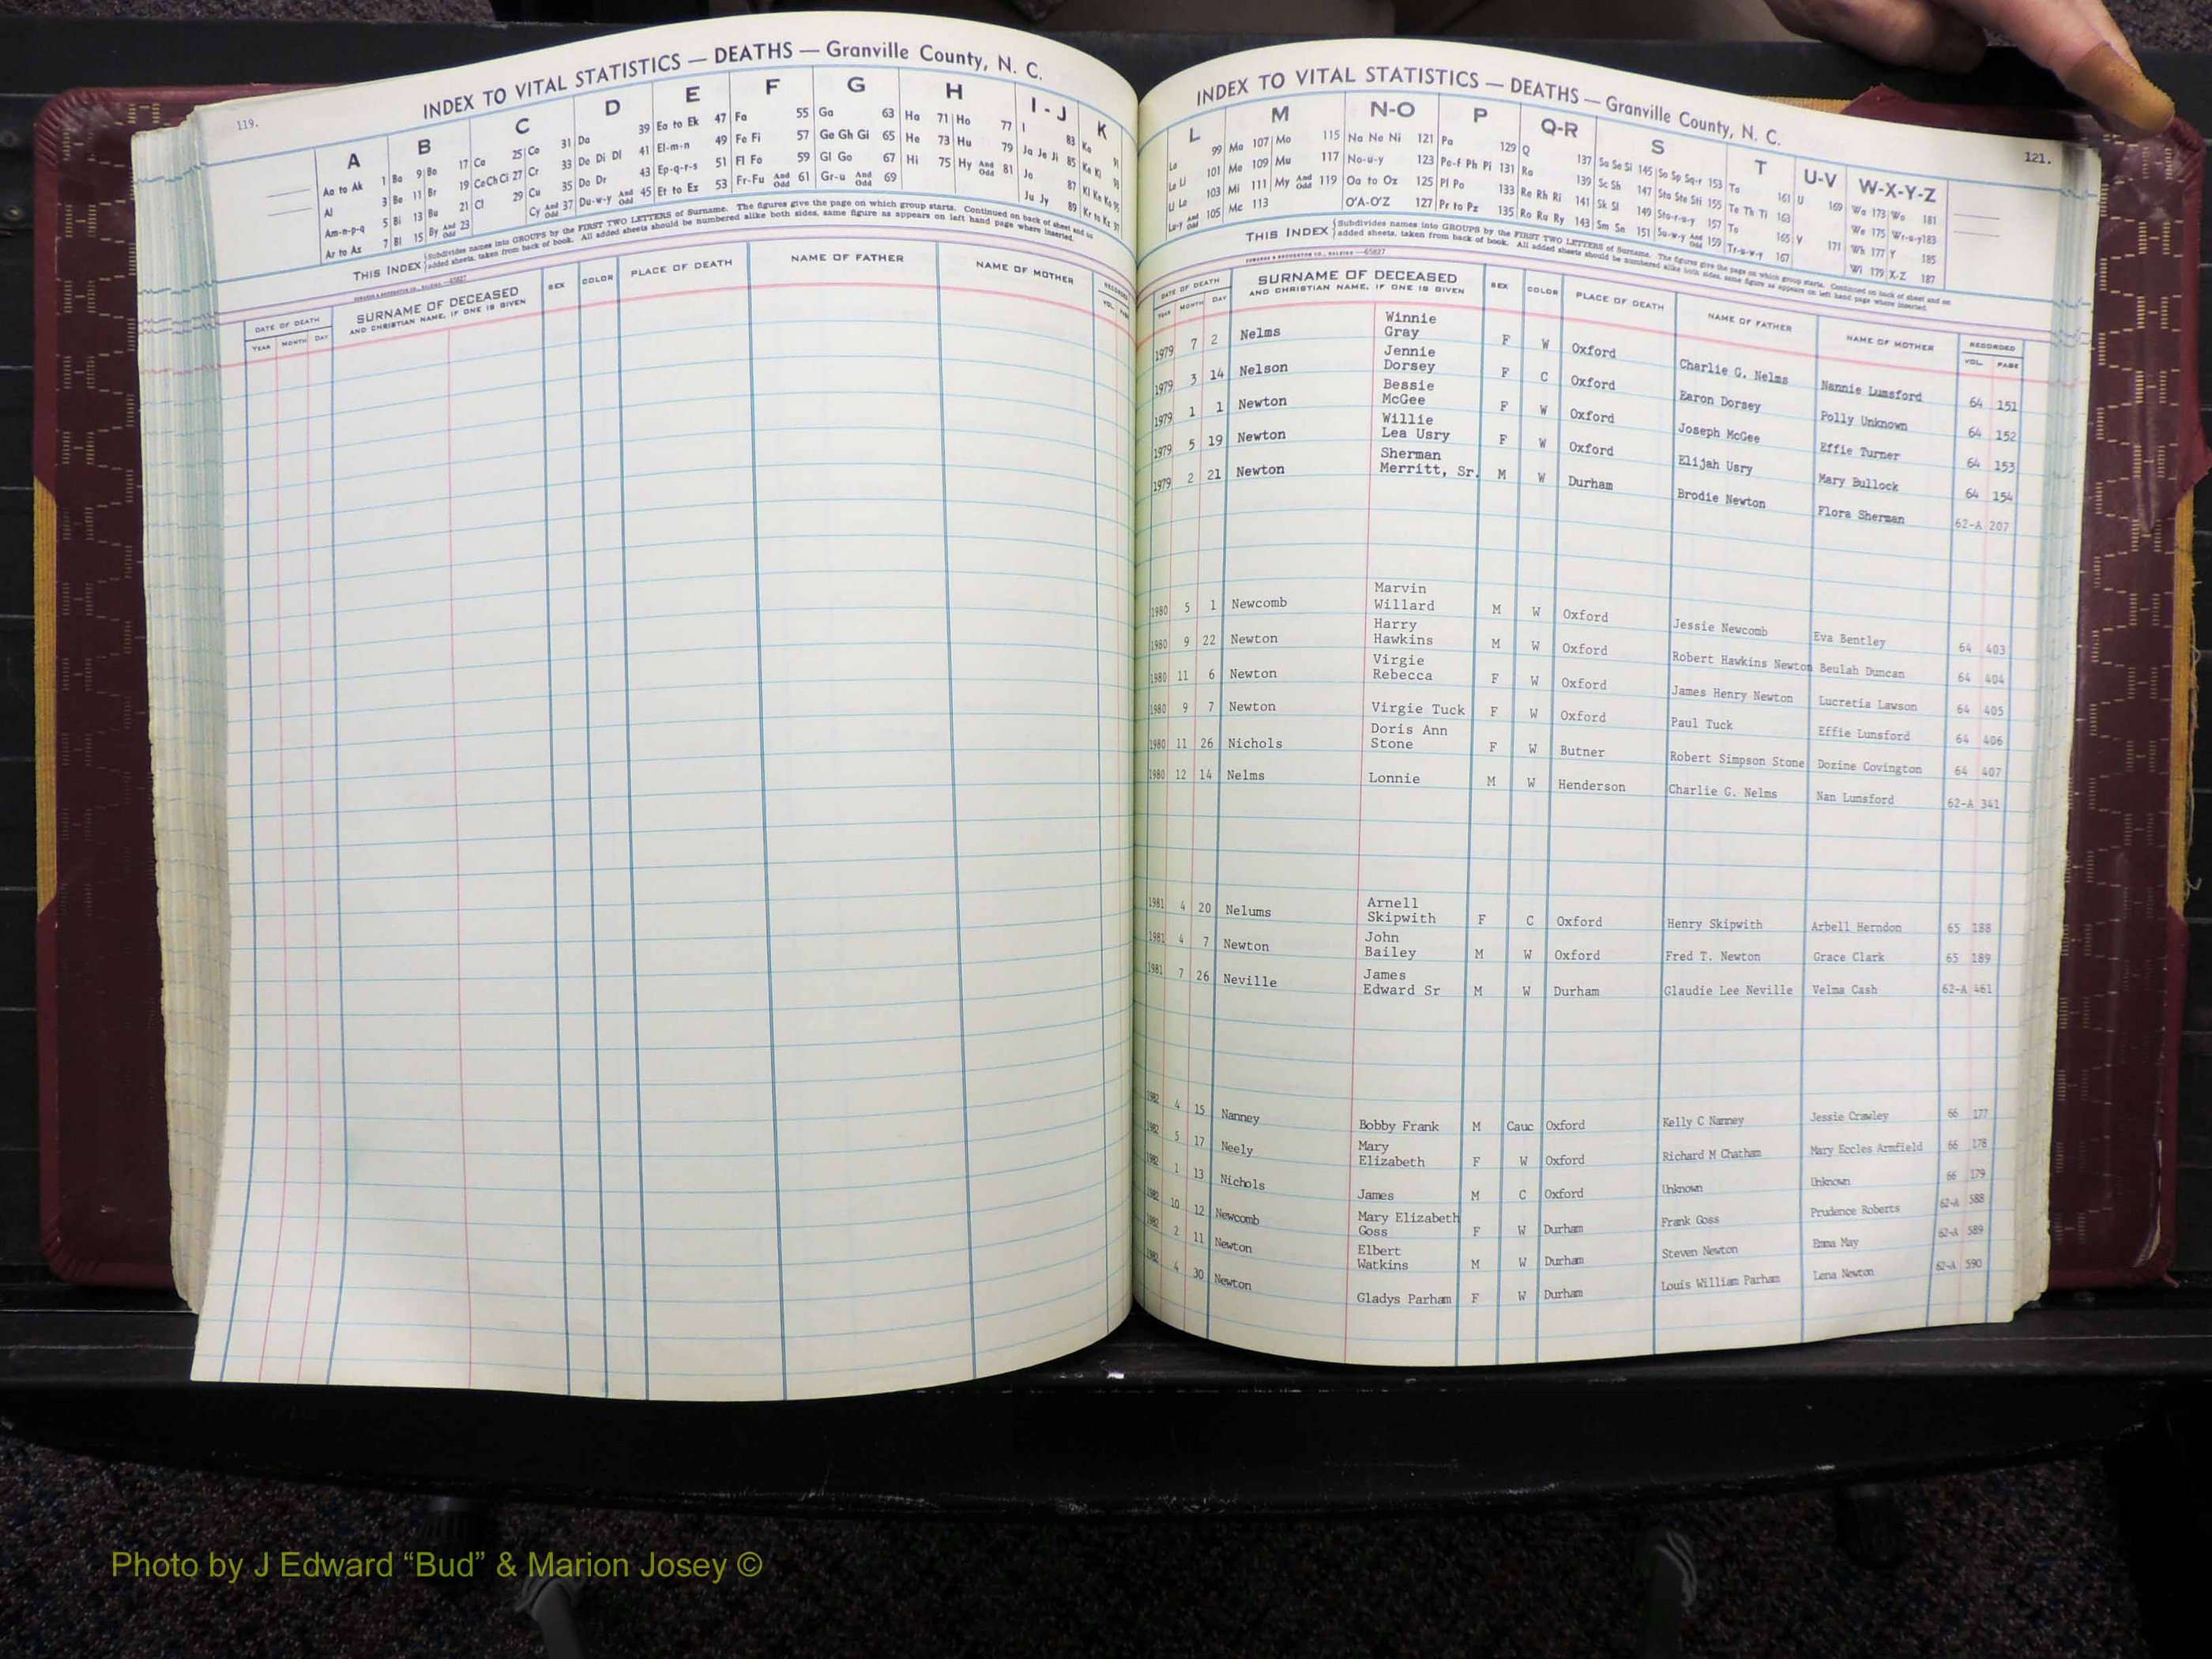 119.
INDEX TO VITAL STATISTICS — DEATHS — Granville County, N. C.
A B C D E F G H I - J K
Aa to Ak 1 Ba 9 Bo 17 Ca 25 Co 31 Da 39 Ea to Ek 47 Fa 55 Ga 63 Ha 71 Ho 77 I 83 Ka 91
Al 3 Be 11 Br 19 Ce Ch Ci 27 Cr 33 De Di Dl 41 El-m-n 49 Fe Fi 57 Ge Gh Gi 65 He 73 Hu 79 Ja Je Ji 85 Ke Ki 93
Am-n-p-q 5 Bi 13 Bu 21 Cl 29 Cu 35 Do Dr 43 Ep-q-r-s 51 Fl Fo 59 Gl Go 67 Hi 75 Hy And Odd 81 Jo 87 Kl Kn Ko 95
Ar to Az 7 Bl 15 By And Odd 23 Cy And Odd 37 Du-w-y And Odd 45 Et to Ez 53 Fr-Fu And Odd 61 Gr-u And Odd 69 Ju Jy 89 Kr to Kz 97
THIS INDEX Subdivides names into GROUPS by the FIRST TWO LETTERS of Surname. The figures give the page on which group starts. Continued on back of sheet and on
added sheets, taken from back of book. All added sheets should be numbered alike both sides, same figure as appears on left hand page where inserted.
DATE OF DEATH SURNAME OF DECEASED SEX COLOR PLACE OF DEATH NAME OF FATHER NAME OF MOTHER RECORDED
YEAR MONTH DAY AND CHRISTIAN NAME, IF ONE IS GIVEN VOL. PAGE
INDEX TO VITAL STATISTICS — DEATHS — Granville County, N. C.
121.
L M N-O P Q-R S T U-V W-X-Y-Z
La 99 Ma 107 Mo 115 Na Ne Ni 121 Pa 129 Q 137 Sa Se Si 145 So Sp Sq-r 153 Ta 161 U 169 Wa 173 Wo 181
Le Li 101 Me 109 Mu 117 No-u-y 123 Pe-f Ph Pi 131 Ra 139 Sc Sh 147 Sta Ste Sti 155 Te Th Ti 163 We 175 Wr-u-y 183
Ll Lo 103 Mi 111 My And Odd 119 Oa to Oz 125 Pl Po 133 Re Rh Ri 141 Sk Sl 149 Sto-r-u-y 157 To 165 V 171 Wh 177 Y 185
Lu-y And Odd 105 Mc 113 O'A-O'Z 127 Pr to Pz 135 Ro Ru Ry 143 Sm Sn 151 Su-w-y And Odd 159 Tr-u-w-y 167 Wi 179 X-Z 187
THIS INDEX Subdivides names into GROUPS by the FIRST TWO LETTERS of Surname. The figures give the page on which group starts. Continued on back of sheet and on
added sheets, taken from back of book. All added sheets should be numbered alike both sides, same figure as appears on left hand page where inserted.
DATE OF DEATH SURNAME OF DECEASED SEX COLOR PLACE OF DEATH NAME OF FATHER NAME OF MOTHER RECORDED
YEAR MONTH DAY AND CHRISTIAN NAME, IF ONE IS GIVEN VOL. PAGE
1979 7 2 Nelms Winnie Gray F W Oxford Charlie G. Nelms Nannie Lunsford 64 151
1979 3 14 Nelson Jennie Dorsey F C Oxford Earon Dorsey Polly Unknown 64 152
1979 1 1 Newton Bessie McGee F W Oxford Joseph McGee Effie Turner 64 153
1979 5 19 Newton Willie Lea Usry F W Oxford Elijah Usry Mary Bullock 64 154
1979 2 21 Newton Sherman Merritt, Sr. M W Durham Brodie Newton Flora Sherman 62-A 207
1980 5 1 Newcomb Marvin Willard M W Oxford Jessie Newcomb Eva Bentley 64 403
1980 9 22 Newton Harry Hawkins M W Oxford Robert Hawkins Newton Beulah Duncan 64 404
1980 11 6 Newton Virgie Rebecca F W Oxford James Henry Newton Lucretia Lawson 64 405
1980 9 7 Newton Virgie Tuck F W Oxford Paul Tuck Effie Lunsford 64 406
1980 11 26 Nichols Doris Ann Stone F W Butner Robert Simpson Stone Dozine Covington 64 407
1980 12 14 Nelms Lonnie M W Henderson Charlie G. Nelms Nan Lunsford 62-A 341
1981 4 20 Nelums Arnell Skipwith F C Oxford Henry Skipwith Arbell Herndon 65 188
1981 4 7 Newton John Bailey M W Oxford Fred T. Newton Grace Clark 65 189
1981 7 26 Neville James Edward Sr M W Durham Glaudie Lee Neville Velma Cash 62-A 461
1982 4 15 Nanney Bobby Frank M Cauc Oxford Kelly C Nanney Jessie Crawley 66 177
1982 5 17 Neely Mary Elizabeth F W Oxford Richard M Chatham Mary Eccles Armfield 66 178
1982 1 13 Nichols James M C Oxford Unknown Unknown 66 179
1982 10 12 Newcomb Mary Elizabeth Goss F W Durham Frank Goss Prudence Roberts 62-A 588
1982 2 11 Newton Elbert Watkins M W Durham Steven Newton Emma May 62-A 589
1982 4 30 Newton Gladys Parham F W Durham Louis William Parham Lena Newton 62-A 590
Photo by J Edward “Bud” & Marion Josey ©